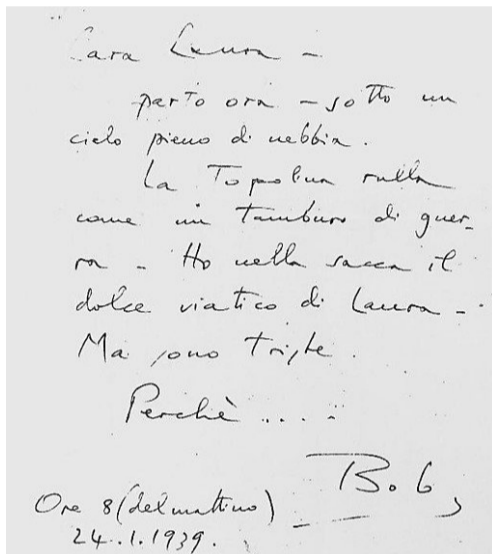 Cara Laura -
parto ora - sotto un
cielo pieno di nebbia.
La Topolina rulla
come un tamburo di guer-
ra - Ho nella sacca il
dolce viatico di Laura -
Ma sono triste.
Perchè .....
Bob,
Ore 8 (del mattino)
24.1.1939.